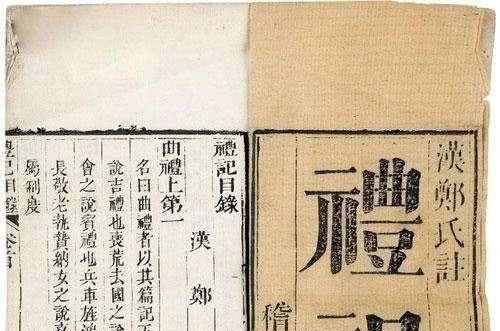 漢鄭氏註
禮
稽
禮記目錄
漢 鄭
曲禮上第一
名曰曲禮者以其篇記
說吉禮也喪荒去國之說
會之說賓禮也兵車旌鴻
長敬老執贄納女之說
屬制度
禮記目錄 卷首